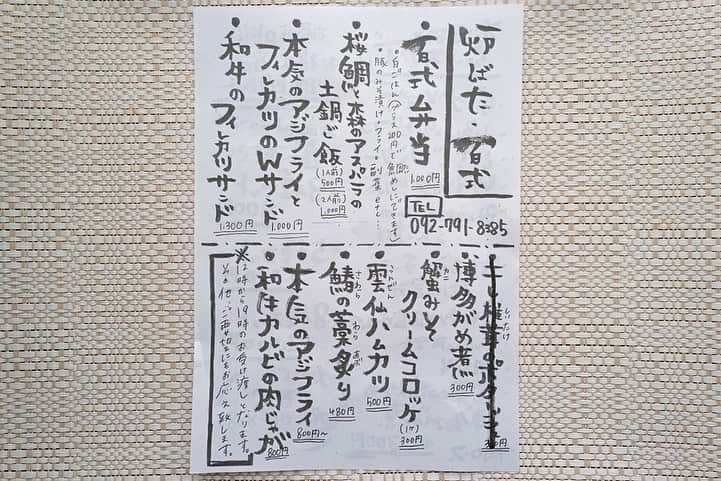 炉ばた・百式
TEL
092-791-8385
・百式弁当
1,000円
・白ごはん(プラス200円で鯛めしにできます)
・豚のみそ漬け・フライ・副菜 etc…
・桜鯛と森のアスパラの
土鍋ご飯
(1人前)
500円
(2人前)
1,000円
・本気のアジフライと
フィレカツのWサンド
1,000円
・和牛のフィレカツサンド
1,300円
しいたけ
椎茸のポタージュ
300円
・博多がめ煮
300円
・蟹みそ
カニ
クリームコロッケ
(1ヶ)
300円
・雲仙ハムカツ
うんぜん
500円
・鰆の藁炙り
さわら
わら
480円
・本気のアジフライ
800円〜
・和牛カルビの肉じゃが
800円
※12時から19時のお受け渡しとなります。
その他、ご要望にもお応え致します。